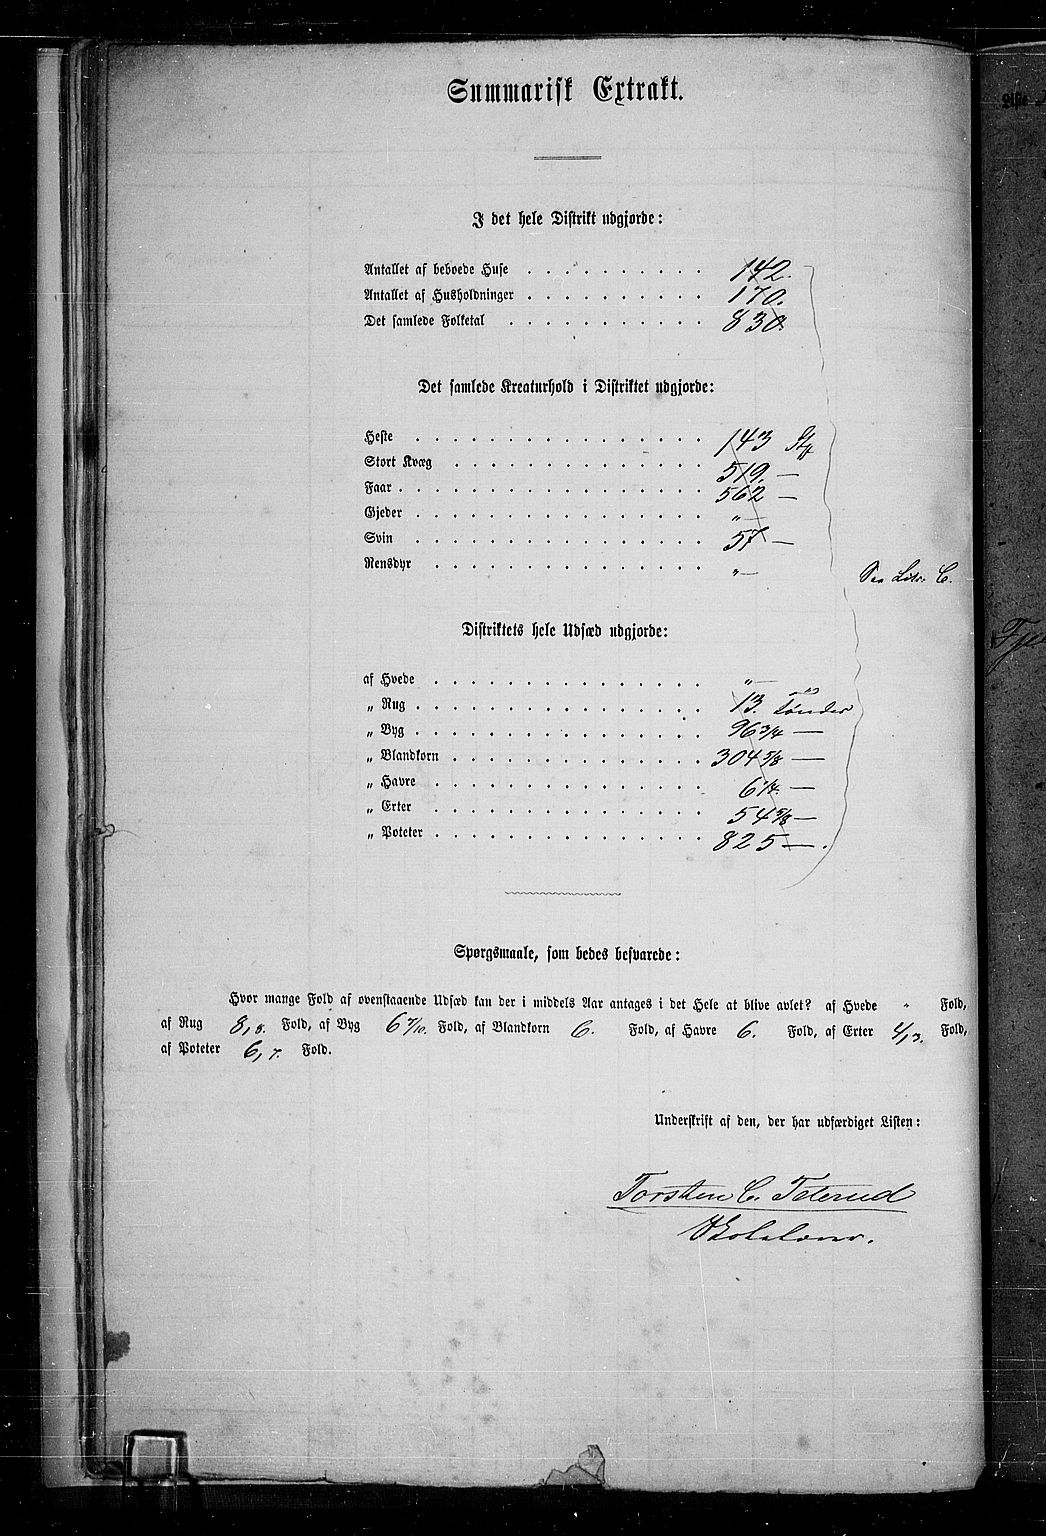 Summarisk Extrakt.
I det hele Distrikt udgjorde:
Antallet af beboede Huse . . . . . . . . . . 142.
Antallet af Husholdninger . . . . . . . . . . 170.
Det samlede Folketal . . . . . . . . . . . 830.
Det samlede Kreaturhold i Distriktet udgjorde:
Heste . . . . . . . . . . . . . . . . 143 Stk
Stort Kvæg . . . . . . . . . . . . . . 519. —
Faar . . . . . . . . . . . . . . . . . 562 —
Gjeder . . . . . . . . . . . . . . . . „ —
Svin . . . . . . . . . . . . . . . . 57 —
Rensdyr . . . . . . . . . . . . . . . „ —
Litr. C.
Distriktets hele Udsæd udgjorde:
af Hvede . . . . . . . . . . . . . . . „ —
„ Rug . . . . . . . . . . . . . . . . 13. Tønder
„ Byg . . . . . . . . . . . . . . . . 96 3/4 —
„ Blandkorn . . . . . . . . . . . . . . 304 5/8 —
„ Havre . . . . . . . . . . . . . . . 6 1/4. —
„ Erter . . . . . . . . . . . . . . . 54 5/8 —
„ Poteter . . . . . . . . . . . . . . . 825 — .
Spørgsmaale, som bedes besvarede:
Hvor mange Fold af ovenstaaende Udsæd kan der i middels Aar antages i det Hele at blive avlet? af Hvede „ Fold,
af Rug 8,8. Fold, af Byg 6 7/10. Fold, af Blandkorn 6. Fold, af Havre 6. Fold, af Erter 4,3. Fold,
af Poteter 6,7. Fold.
Underskrift af den, der har udfærdiget Listen:
Torsten C. Teterud
Skolelærer.